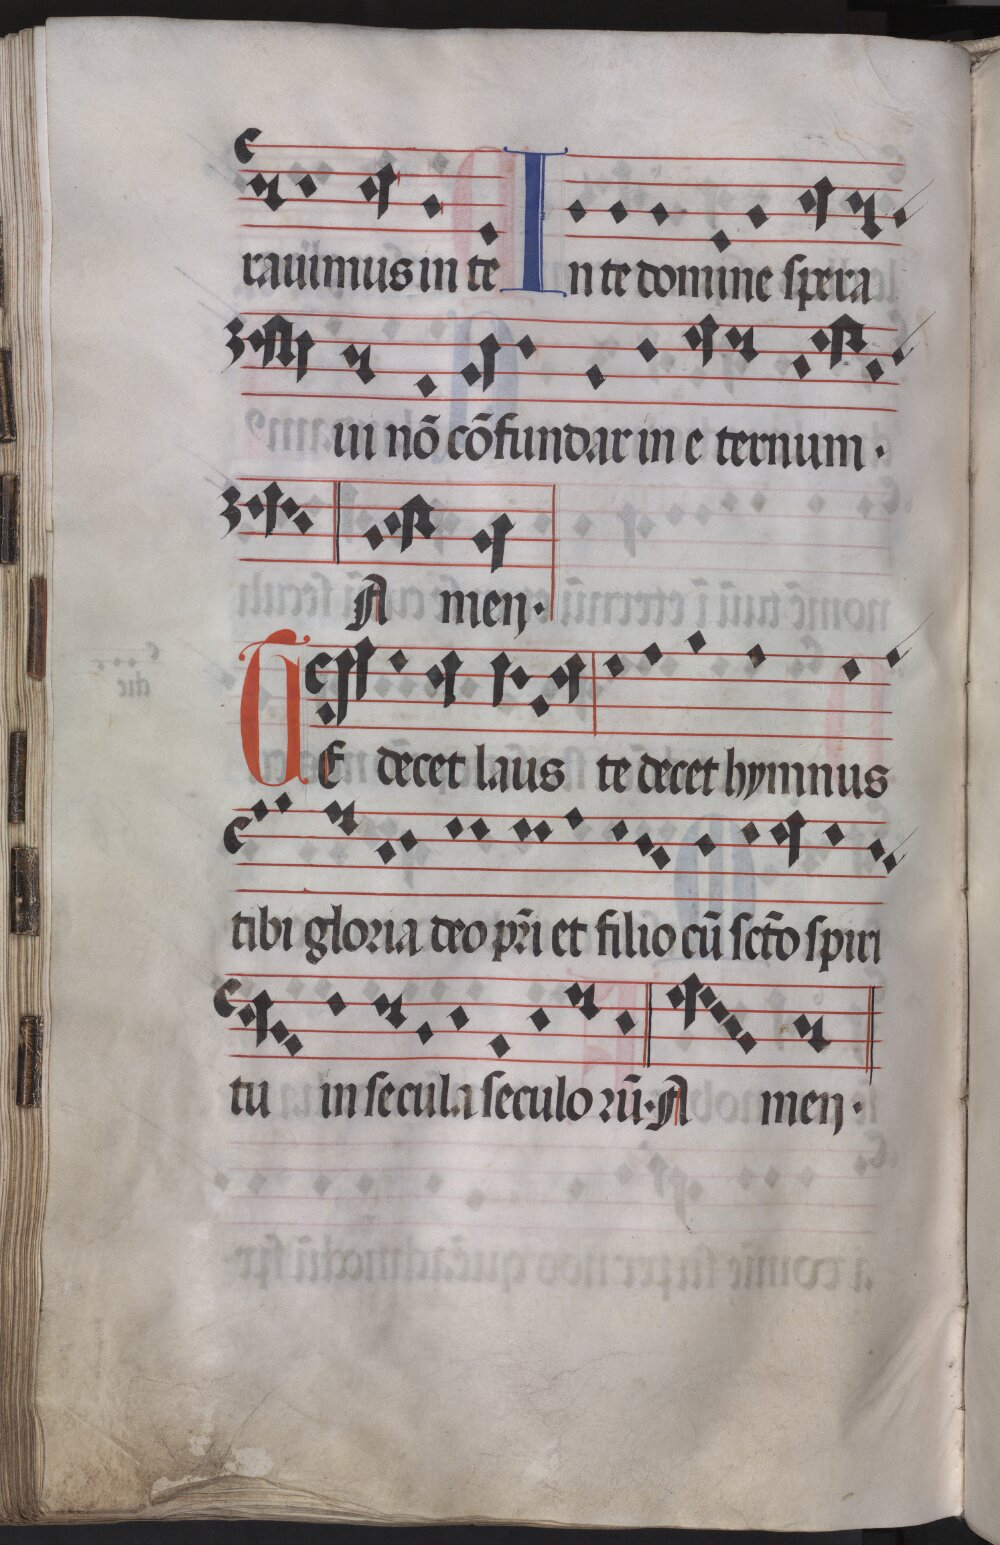 rauimus in te In te domine spera
ui nō cōfundar in e ternum.
Amen.
TE decet laus te decet hymnus
tibi gloria deo pr̄i et filio cū sct̄o spiri
tu in secula seculo rū. Amen.